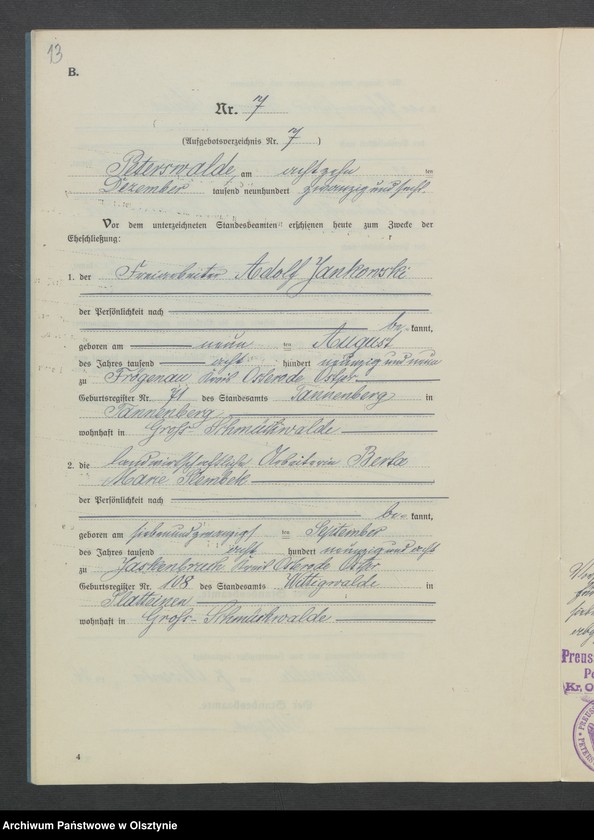 13
B.
Nr. 7
(Aufgebotsverzeichnis Nr. 7)
Peterswalde, am achtzehn ten
Dezember tausend neunhundert zwanzig und sechs.
Vor dem unterzeichneten Standesbeamten erschienen heute zum Zwecke der
Eheschließung:
1. der Freiarbeiter Adolf Jankowski
der Persönlichkeit nach
be kannt,
geboren am neun ten August
des Jahres tausend acht hundert neunzig und neun
zu Frögenau Kreis Osterode Ostpr
Geburtsregister Nr. 71 des Standesamts Tannenberg in
Tannenberg
wohnhaft in Groß Schmückwalde
2. die landwirtschaftliche Arbeiterin Berta
Marie
der Persönlichkeit nach
be kannt,
geboren am siebenundzwanzigst ten September
des Jahres tausend acht hundert neunzig und acht
zu Kreis Osterode Ostpr
Geburtsregister Nr. 108 des Standesamts Wittigwalde in
Platteinen
wohnhaft in Groß-Schmückwalde
4
Preus
Kr. O
Archiwum Państwowe w Olsztynie